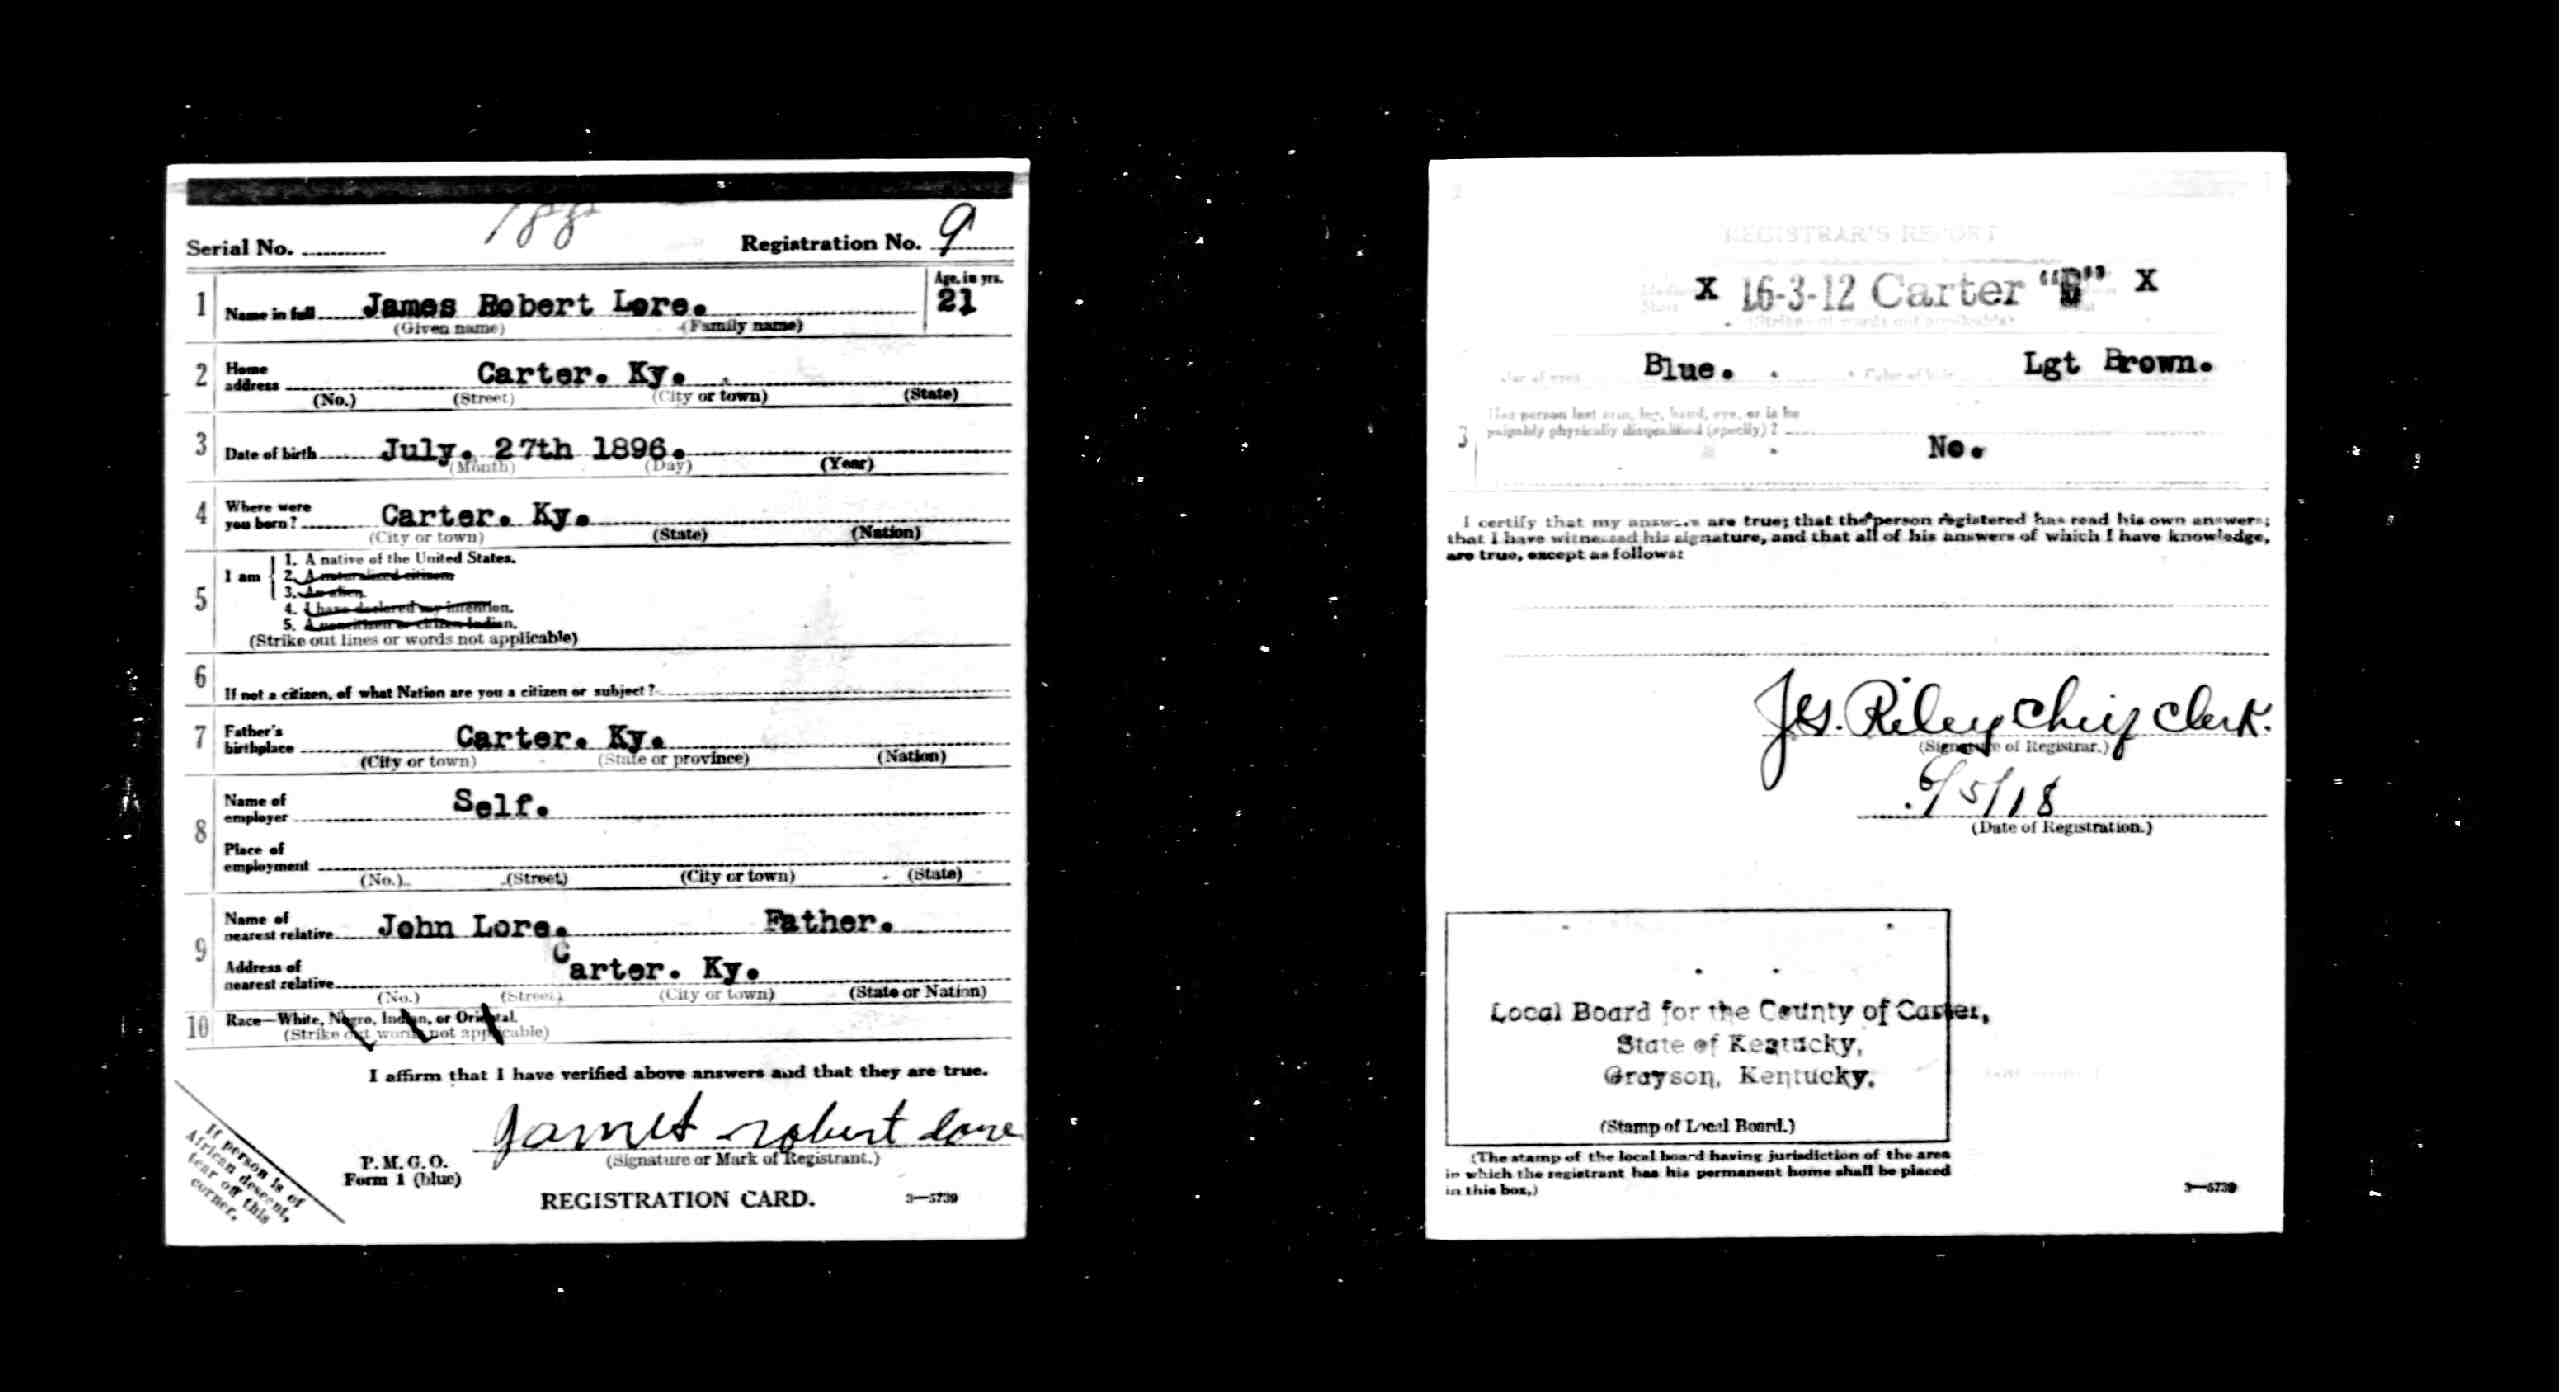 188
Serial No. ............ Registration No. 9
1 Name in full James Robert Lore. Age, in yrs. 21
(Given name) (Family name)
2 Home address Carter. Ky.
(No.) (Street) (City or town) (State)
3 Date of birth July. 27th 1896.
(Month) (Day) (Year)
4 Where were you born? Carter. Ky.
(City or town) (State) (Nation)
5 I am
1. A native of the United States.
2. A naturalized citizen
3. An alien.
4. I have declared my intention.
5. A noncitizen or citizen Indian.
(Strike out lines or words not applicable)
6 If not a citizen, of what Nation are you a citizen or subject?
7 Father's birthplace Carter. Ky.
(City or town) (State or province) (Nation)
8 Name of employer Self.
Place of employment
(No.) (Street) (City or town) (State)
9 Name of nearest relative John Lore. Father.
Address of nearest relative Carter. Ky.
(No.) (Street) (City or town) (State or Nation)
10 Race—White, Negro, Indian, or Oriental.
(Strike out words not applicable)
I affirm that I have verified above answers and that they are true.
James robert lore
(Signature or Mark of Registrant.)
P. M. G. O.
Form 1 (blue)
REGISTRATION CARD. 3—5739
If person is of
African descent,
tear off this
corner.
REGISTRAR'S REPORT
X 16-3-12 Carter "B" X
(Strike out words not applicable)
Blue. Color of hair Lgt Brown.
3 Has person lost arm, leg, hand, eye, or is he
palpably physically disqualified (specify)?
No.
I certify that my answers are true; that the person registered has read his own answers;
that I have witnessed his signature, and that all of his answers of which I have knowledge,
are true, except as follows:
Jas. Riley Chief Clerk.
(Signature of Registrar.)
6/5/18
(Date of Registration.)
Local Board for the County of Carter,
State of Kentucky,
Grayson, Kentucky.
(Stamp of Local Board.)
(The stamp of the local board having jurisdiction of the area
in which the registrant has his permanent home shall be placed
in this box.)
3—5739